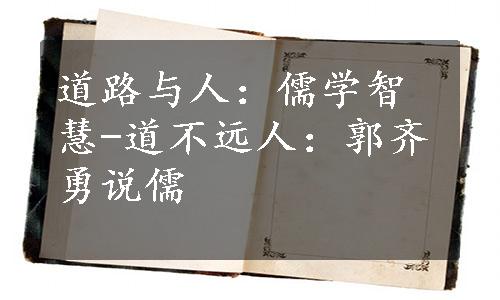 道路与人：儒学智
慧-道不远人：郭齐
勇说儒